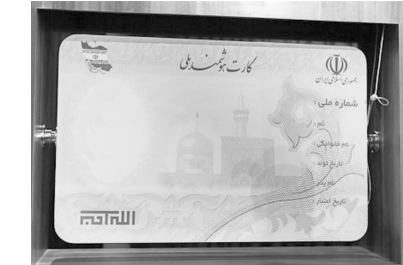 کارت هوشمند ملی
جمهوری اسلامی ایران
شماره ملی :
نام :
نام خانوادگی :
تاریخ تولد :
نام پدر :
تاریخ اعتبار :
الله اکبر